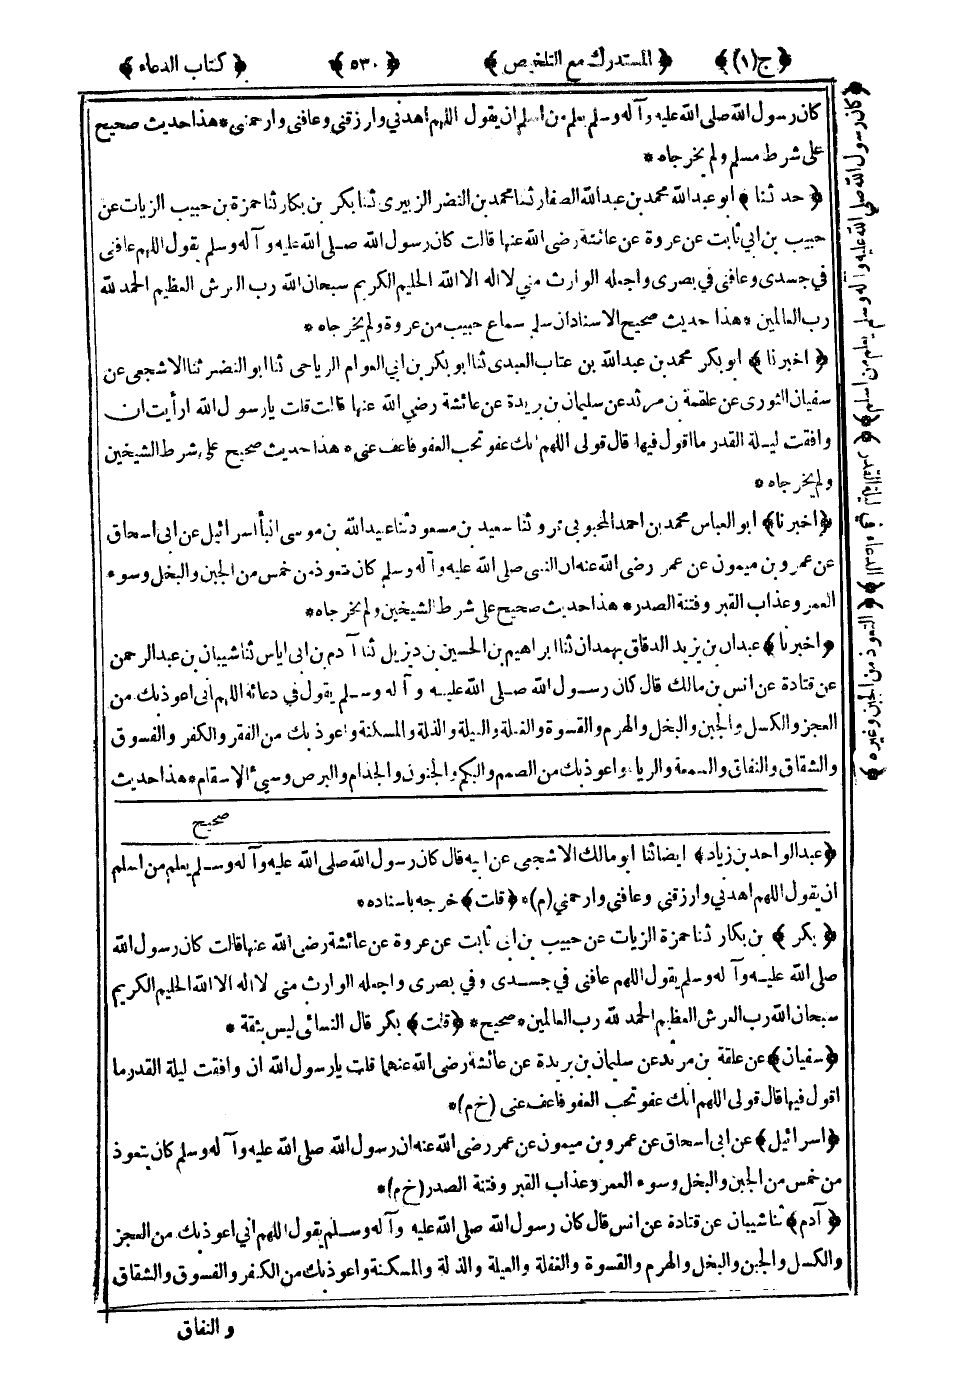 ﴿ ج (١) ﴾ ﴿ المستدرك مع التلخيص ﴾ ﴿ ٥٣٠ ﴾ ﴿ كتاب الدعاء ﴾
كان رسول الله صلى الله عليه وآله وسلم يعلم من اسلم ان يقول اللهم اهدني وارزقني وعافني وارحمني * هذا حديث صحيح
على شرط مسلم ولم يخرجاه *
﴿ حدثنا ﴾ ابو عبد الله محمد بن عبد الله الصفار ثنا محمد بن النضر الزبيرى ثنا بكر بن بكار ثنا حمزة بن حبيب الزيات عن
حبيب بن ابي ثابت عن عروة عن عائشة رضى الله عنها قالت كان رسول الله صلى الله عليه وآله وسلم يقول اللهم عافنى
في جسدى وعافني في بصرى واجعله الوارث مني لا اله الا الله الحليم الكريم سبحان الله رب العرش العظيم الحمد لله
رب العالمين * هذا حديث صحيح الاسناد ان سلم سماع حبيب من عروة ولم يخرجاه *
﴿ اخبرنا ﴾ ابو بكر محمد بن عبد الله بن عتاب العبدى ثنا ابو بكر بن ابي العوام الرياحى ثنا ابو النضر ثنا الاشجعى عن
سفيان الثورى عن علقمة بن مرثد عن سليمان بن بريدة عن عائشة رضي الله عنها قالت قلت يا رسول الله ارأيت ان
وافقت ليلة القدر ما اقول فيها قال قولى اللهم انك عفو تحب العفو فاعف عنى * هذا حديث صحيح على شرط الشيخين
ولم يخرجاه *
﴿ اخبرنا ﴾ ابو العباس محمد بن احمد المحبوبى بمرو ثنا سعيد بن مسعود ثنا عبيد الله بن موسى انبأ اسرائيل عن ابى اسحاق
عن عمرو بن ميمون عن عمر رضى الله عنه ان النبى صلى الله عليه وآله وسلم كان يتعوذ من خمس من الجبن والبخل وسوء
العمر وعذاب القبر وفتنة الصدر * هذا حديث صحيح على شرط الشيخين ولم يخرجاه *
﴿ اخبرنا ﴾ عبدان بن يزيد الدقاق بهمدان ثنا ابراهيم بن الحسين بن ديزيل ثنا آدم بن ابى اياس ثنا شيبان بن عبد الرحمن
عن قتادة عن انس بن مالك قال كان رسول الله صلى الله عليه وآله وسلم يقول في دعائه اللهم انى اعوذ بك من
العجز والكسل والجبن والبخل والهرم والقسوة والغفلة والعيلة والذلة والمسكنة واعوذ بك من الفقر والكفر والفسوق
والشقاق والنفاق والسمعة والرياء واعوذ بك من الصمم والبكم والجنون والجذام والبرص وسيئ الاسقام * هذا حديث
صحيح
﴿ عبد الواحد بن زياد ﴾ ايضا ثنا ابو مالك الاشجعى عن ابيه قال كان رسول الله صلى الله عليه وآله وسلم يعلم من اسلم
ان يقول اللهم اهدني وارزقنى وعافنى وارحمني (م) * ﴿ قلت ﴾ خرجه باسناده *
﴿ بكر ﴾ بن بكار ثنا حمزة الزيات عن حبيب بن ابي ثابت عن عروة عن عائشة رضى الله عنها قالت كان رسول الله
صلى الله عليه وآله وسلم يقول اللهم عافني في جسدى وفي بصرى واجعله الوارث منى لا اله الا الله الحليم الكريم
سبحان الله رب العرش العظيم الحمد لله رب العالمين * صحيح * ﴿ قلت ﴾ بكر قال النسائى ليس بثقة *
﴿ سفيان ﴾ عن علقمة بن مرثد عن سليمان بن بريدة عن عائشة رضى الله عنها قلت يا رسول الله ان وافقت ليلة القدر ما
اقول فيها قال قولى اللهم انك عفو تحب العفو فاعف عنى (خ م) *
﴿ اسرائيل ﴾ عن ابى اسحاق عن عمرو بن ميمون عن عمر رضى الله عنه ان رسول الله صلى الله عليه وآله وسلم كان يتعوذ
من خمس من الجبن والبخل وسوء العمر وعذاب القبر وفتنة الصدر (خ م) *
﴿ آدم ﴾ ثنا شيبان عن قتادة عن انس قال كان رسول الله صلى الله عليه وآله وسلم يقول اللهم اني اعوذ بك من العجز
والكسل والجبن والبخل والهرم والقسوة والغفلة والعيلة والذلة والمسكنة واعوذ بك من الكفر والفسوق والشقاق
والنفاق
﴿ كان رسول الله صلى الله عليه وآله وسلم يعلم من اسلم ﴾ ﴿ الدعاء في ليلة القدر ﴾ ﴿ التعوذ من الجبن وغيره ﴾